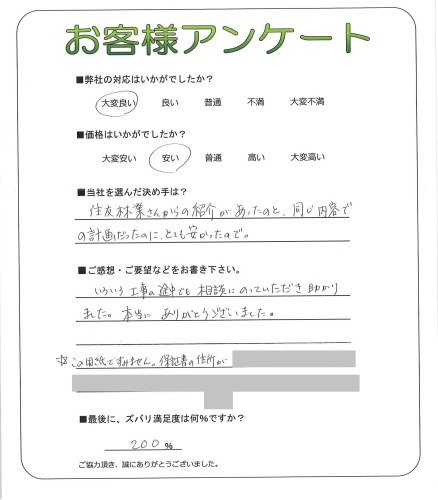 お客様アンケート
■弊社の対応はいかがでしたか？
大変良い 良い 普通 不満 大変不満
■価格はいかがでしたか？
大変安い 安い 普通 高い 大変高い
■当社を選んだ決め手は？
住友林業さんからの紹介があったのと、同じ内容で
の計画だったのに、とても安かったので。
■ご感想・ご要望などをお書き下さい。
いろいろ工事の途中でも相談にのっていただき助かり
ました。本当に ありがとうございました。
☆この用紙ですみません。保証書の住所が
■最後に、ズバリ満足度は何%ですか？
200 %
ご協力頂き、誠にありがとうございました。